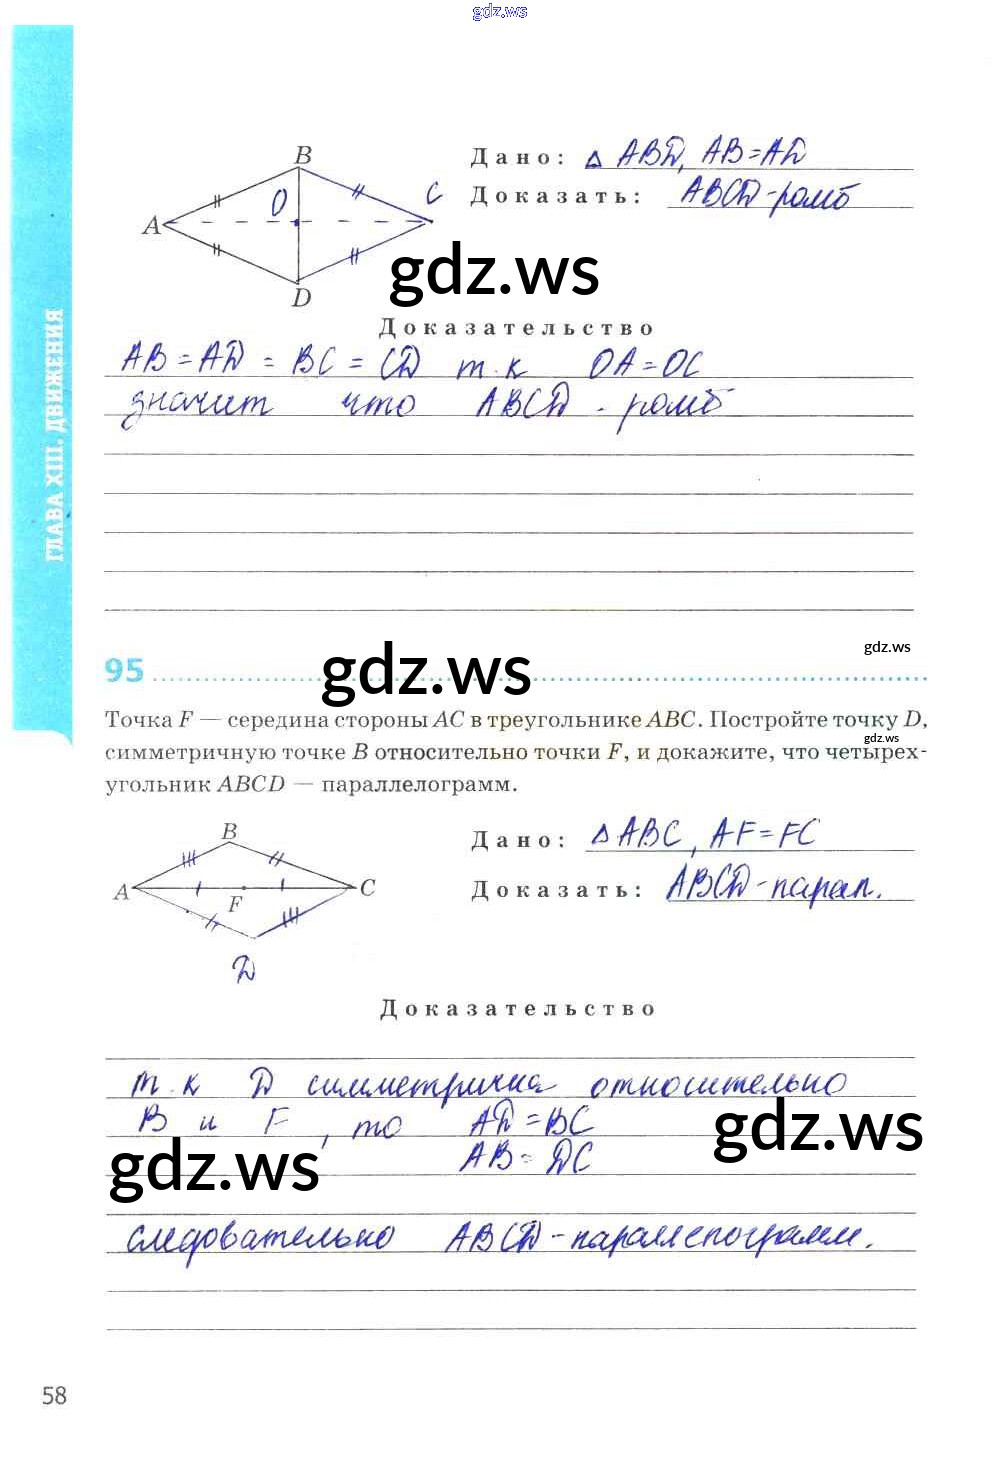 gdz.ws
ГЛАВА XIII. ДВИЖЕНИЯ
B
O
C
A
D
Дано: Δ ABD, AB=AD
Доказать: ABCD-ромб
gdz.ws
Доказательство
AB=AD = BC = CD т.к OA=OC
значит что ABCD - ромб
95
gdz.ws
gdz.ws
Точка F — середина стороны AC в треугольнике ABC. Постройте точку D,
gdz.ws
симметричную точке B относительно точки F, и докажите, что четырех-
угольник ABCD — параллелограмм.
B
A
F
C
D
Дано: Δ ABC, AF=FC
Доказать: ABCD-парал.
Доказательство
т.к D симметрична относительно
B и F, то AD=BC
gdz.ws
AB=DC
gdz.ws
следовательно ABCD-параллелограмм.
58